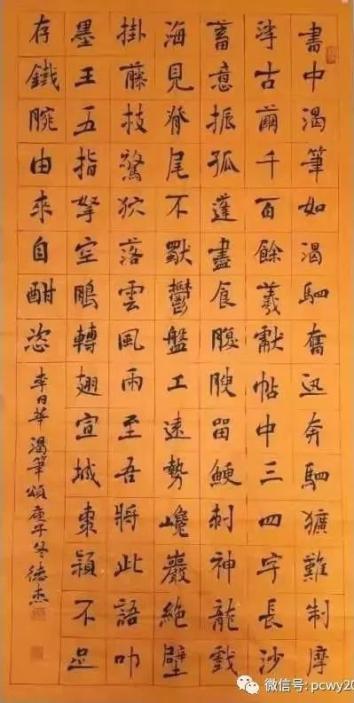 書中渴筆如渴驷奮迅奔驷獷難制摩
挲古繭千百餘羲獻帖中三四字長沙
蓄意振孤蓬盡食腹腴留鯁刺神龍戲
海見脊尾不獸鬱盤工遠勢巉巖絕壁
掛藤枝驚狖落雲風雨至吾將此語叩
墨王五指拏空鵬轉翅宣城棗穎不足
存鐵腕由來自酣恣
李日華渴筆頌庚子冬德杰
微信号: pcwy20